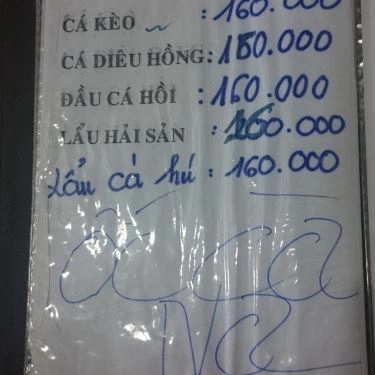 CÁ KÈO : 160.000
CÁ DIÊU HỒNG : 160.000
ĐẦU CÁ HỒI : 160.000
LẨU HẢI SẢN : 160.000
Lẩu cá hú : 160.000